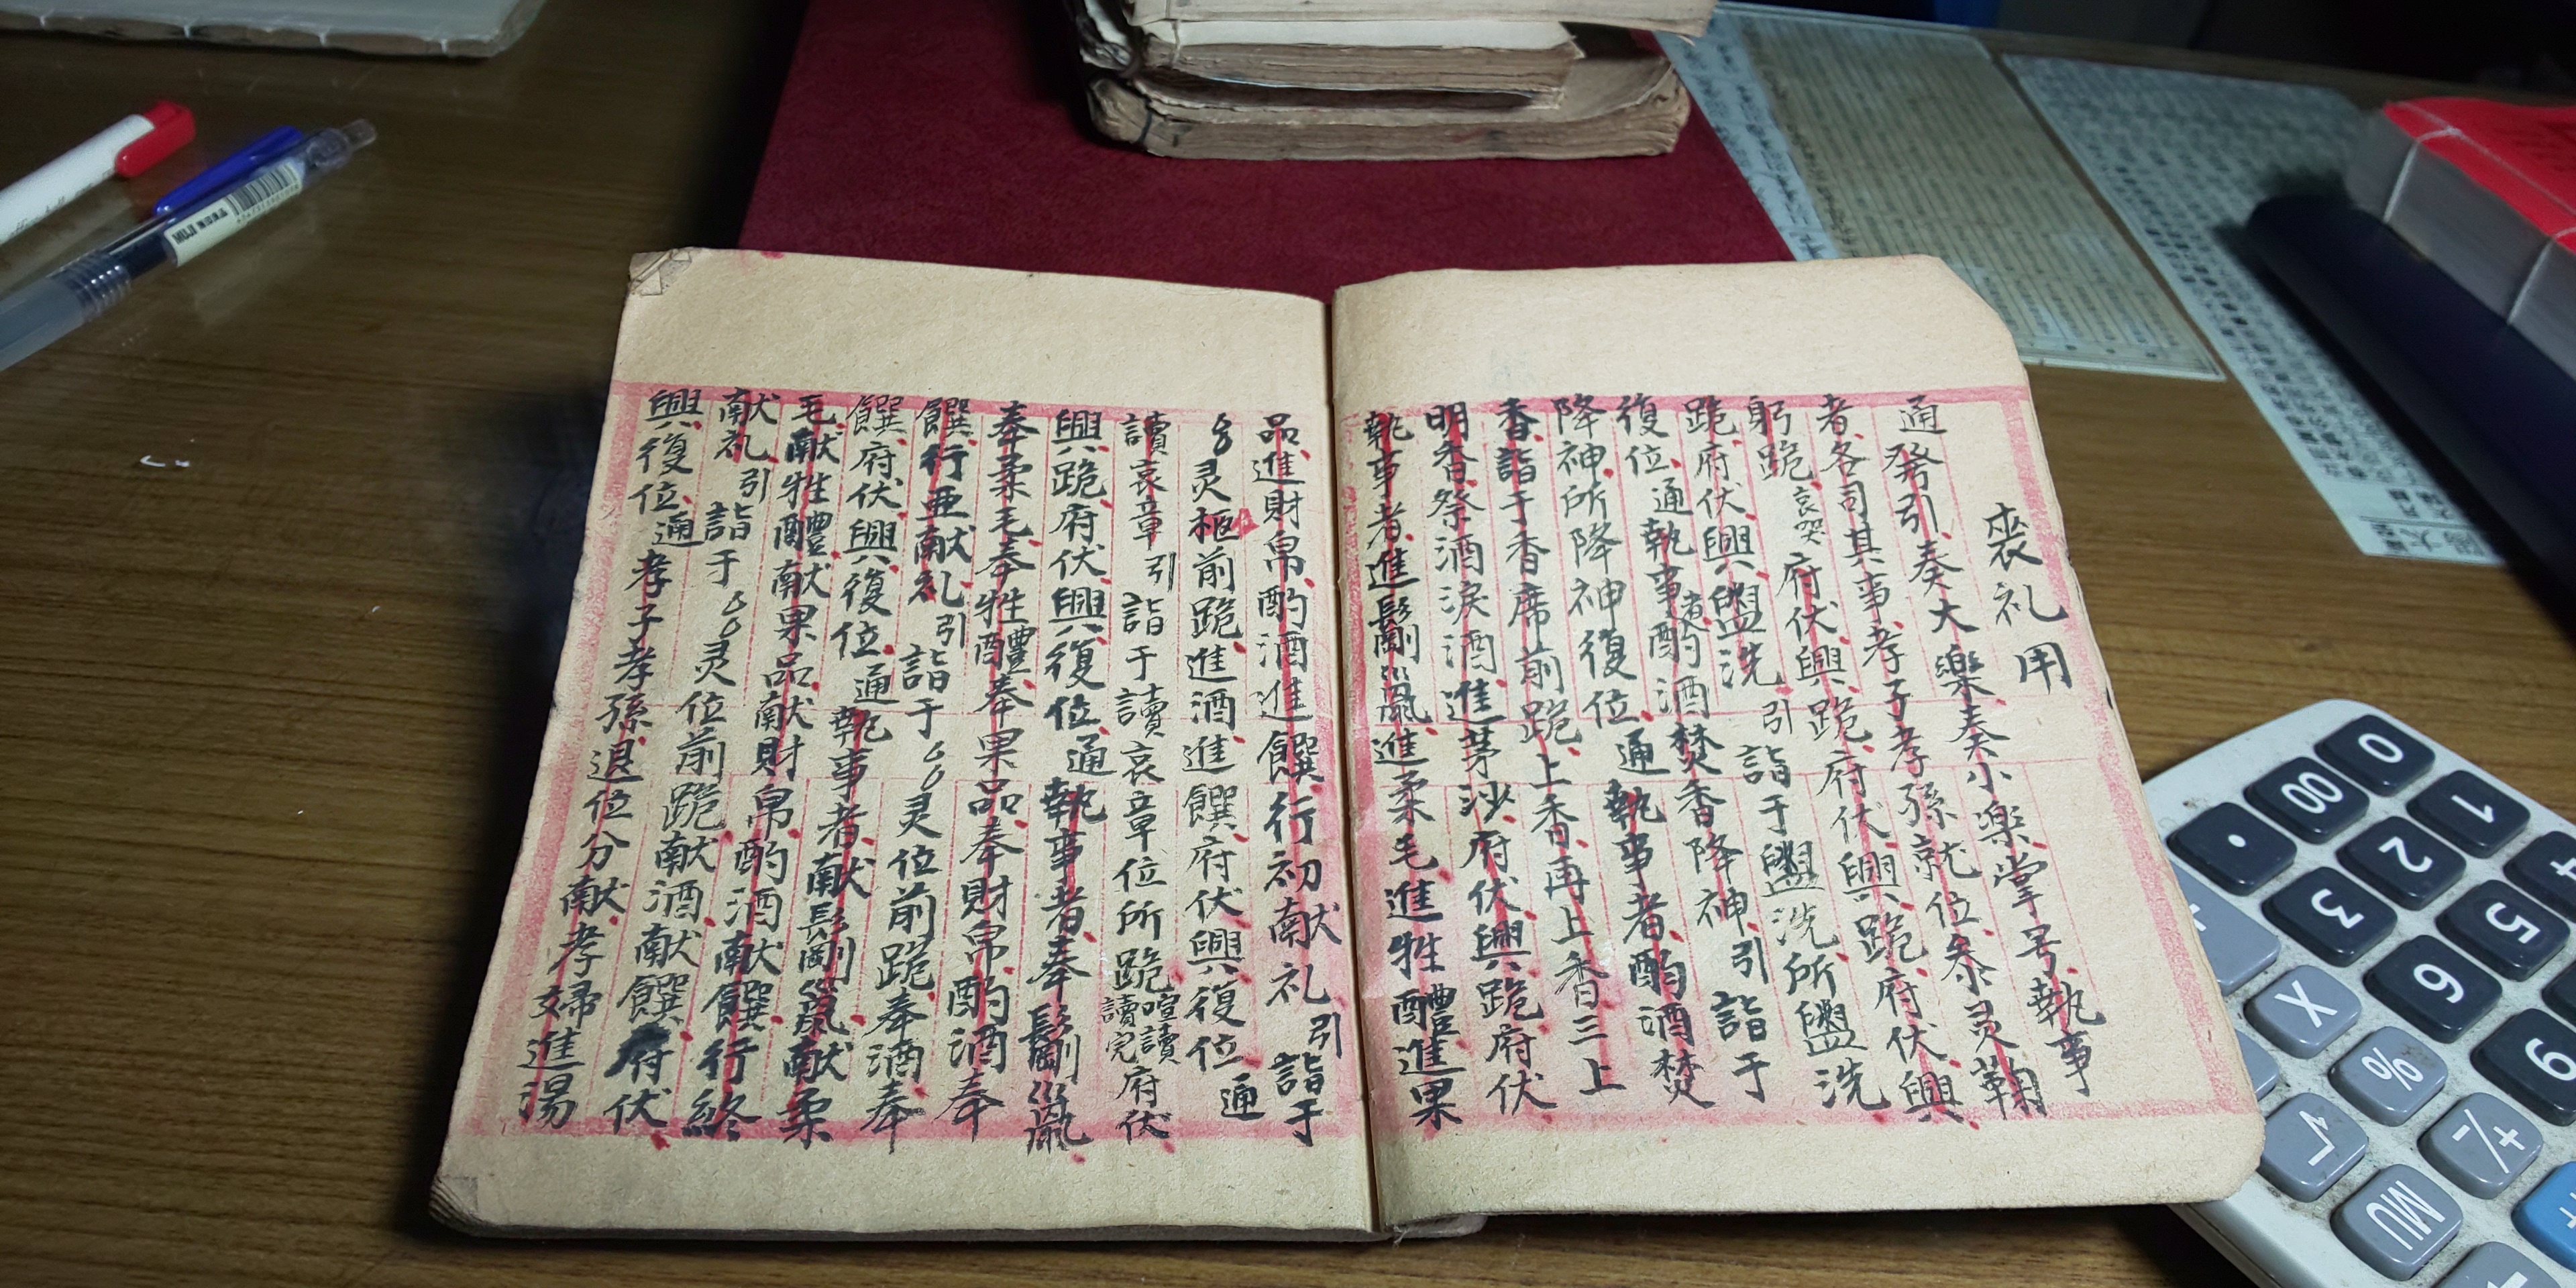 喪礼用
通 發引奏大樂奏小樂掌号執事
者各司其事孝子孝孫就位参灵鞠
躬跪哀哭府伏興跪府伏興跪府伏興
跪府伏興盥洗 引 詣于盥洗所盥洗
復位通執事者酌酒焚香降神引詣于
降神所降神復位通執事者酌酒焚
香詣于香席前跪上香再上香三上
明香祭酒淚酒進茅沙府伏興跪府伏
執事者進髯剛巤進柔毛進牲醴進果
品進財帛酌酒進饌行初献礼引詣于
灵柩前跪進酒進饌府伏興復位通
讀哀章引詣于讀哀章位所跪喧讀讀完府伏
興跪府伏興復位通執事者奉髯剛巤
奉柔毛奉牲醴奉果品奉財帛酌酒奉
饌行亜献礼引詣于灵位前跪奉酒奉
饌府伏興復位通執事者献髯剛巤献柔
毛献牲醴献果品献財帛酌酒献饌行終
献礼引詣于灵位前跪献酒献饌府伏
興復位通孝子孝孫退位分献孝婦進湯
0
00
.
1
2
3
5
6
9
X
%
√
+/-
MU